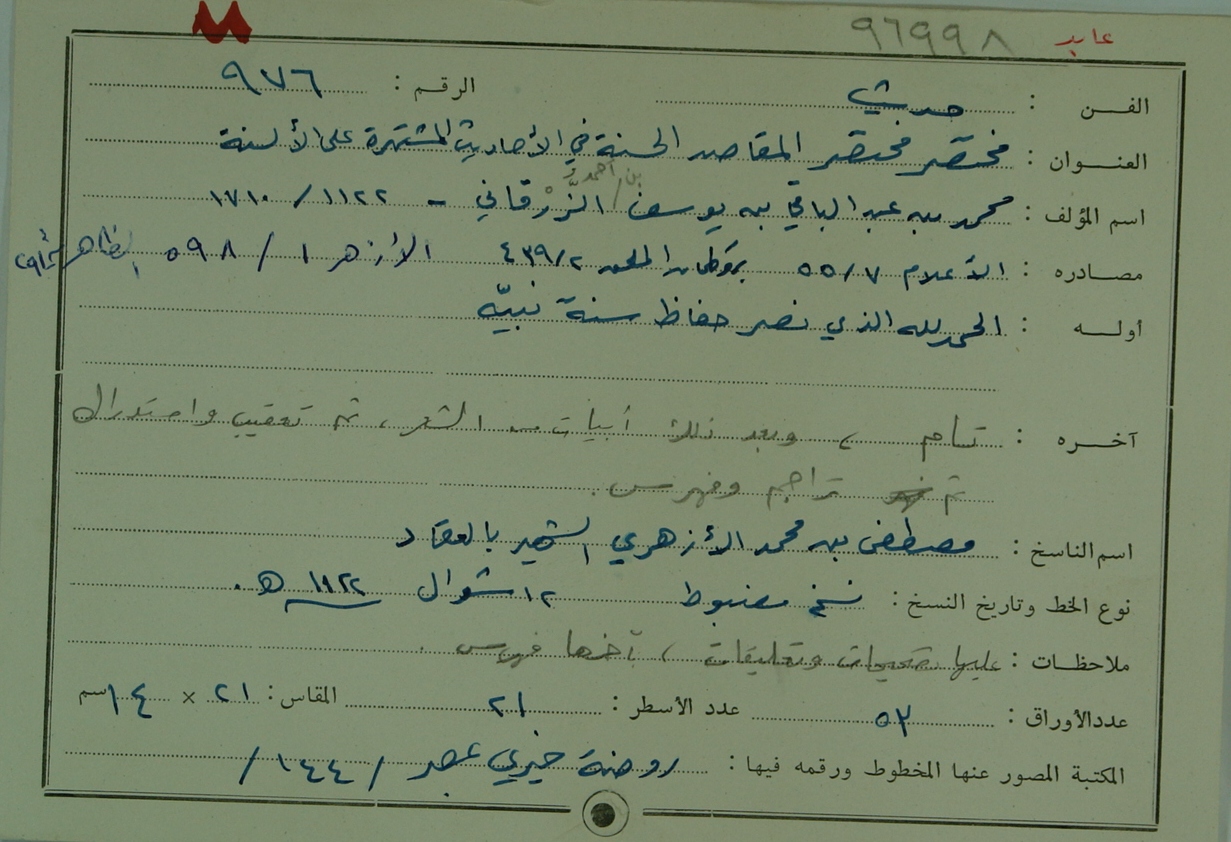 عابد ٩٦٩٩٨
الفن : حديث الرقم : ٩٧٦
العنوان : مختصر مختصر المقاصد الحسنة في الأحاديث المشتهرة على الألسنة
بن أحمد
اسم المؤلف : محمد بن عبد الباقي بن يوسف الزُّرْقاني - ١١٢٢ / ١٧١٠
مصادره : الأعلام ٧/٥٥ بروكلمان الملحق ٢/٤٣٩ الأزهر ١/٥٩٨
أوله : الحمد لله الذي نضر حفاظ سنة نبيّه
آخره : تسلم ، وبعد ذلك أبيات من الشعر ، ثم تعقيب واستدراك
ثم تراجم وفهرس .
اسم الناسخ : مصطفى بن محمد الأزهري الشهير بالعقاد
نوع الخط وتاريخ النسخ : نسخ مضبوط ١٢ شوال ١١٢٢ هـ .
ملاحظات : عليها تصحيحات وتعليقات ، بآخرها فهرس .
عدد الأوراق : ٥٣ عدد الأسطر : ٢١ المقاس : ٢١ × ١٤ سم
المكتبة المصور عنها المخطوط ورقمه فيها : روضة خيري بمصر / ١٤٤ /